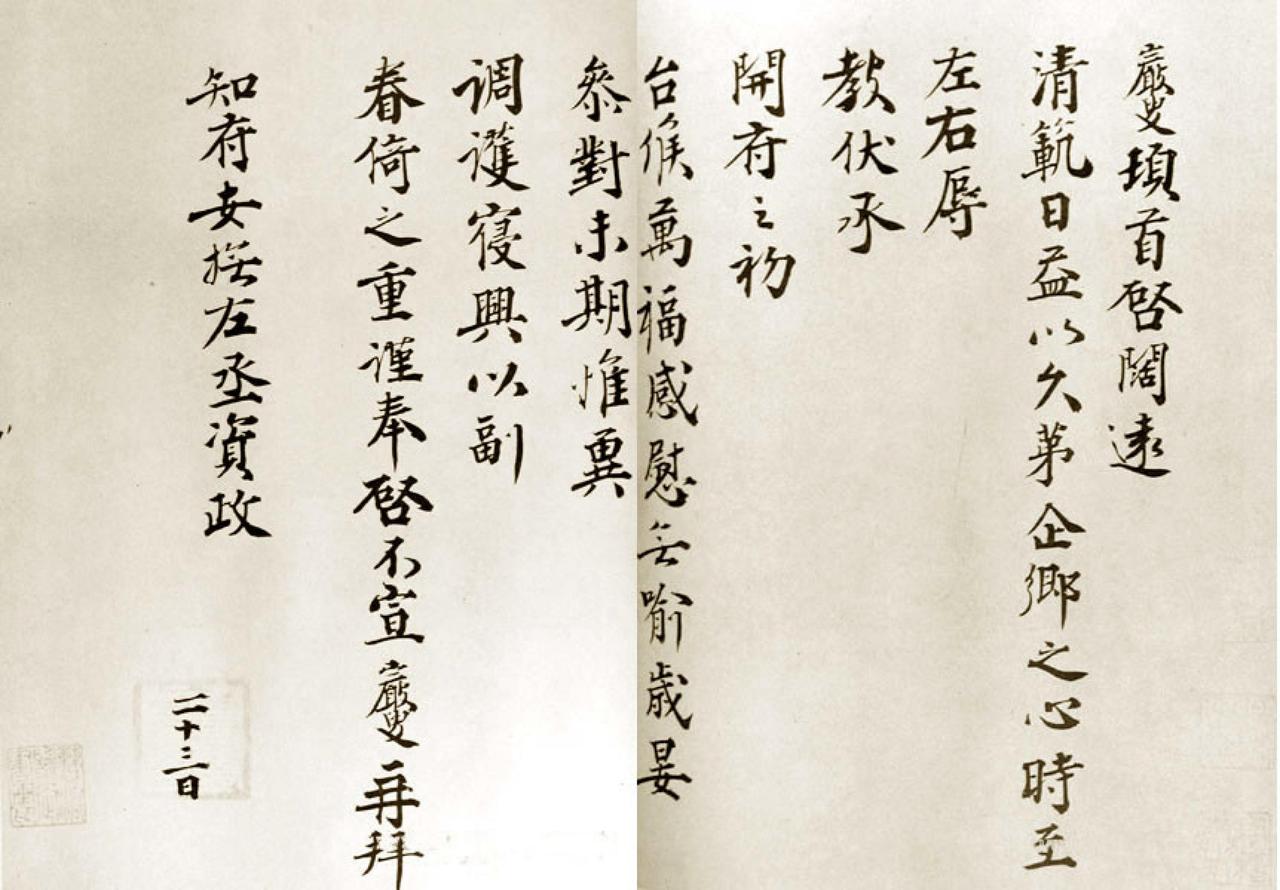 巖叟頓首啓闊遠
清範日益以久第企鄉之心時至
左右辱
教伏承
開府之初
台候萬福感慰無喻歲晏
參對未期惟冀
調護寢興以副
眷倚之重謹奉啓不宣巖叟再拜
知府安撫左丞資政
二十三日